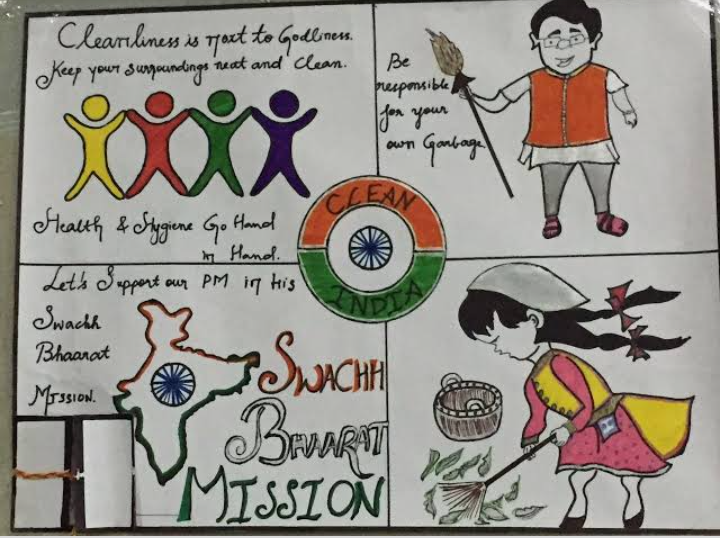 Cleanliness is next to Godliness.
Keep your surroundings neat and clean.
Health & Hygiene Go Hand
in Hand.
Be
responsible
for your
own Garbage.
CLEAN
INDIA
Let's Support our PM in his
Swachh
Bhaarat
Mission.
SWACHH
BHAARAT
MISSION